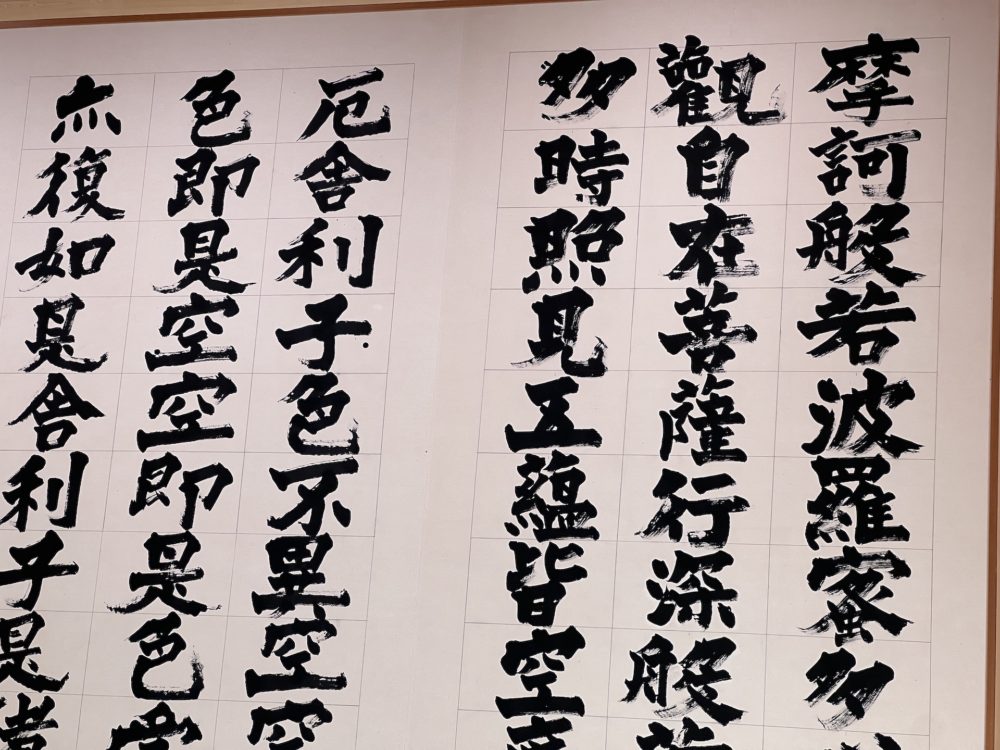 摩訶般若波羅蜜多
觀自在菩薩行深般
多時照見五蘊皆空
厄舍利子色不異空空
色即是空空即是色受
亦復如是舍利子是諸